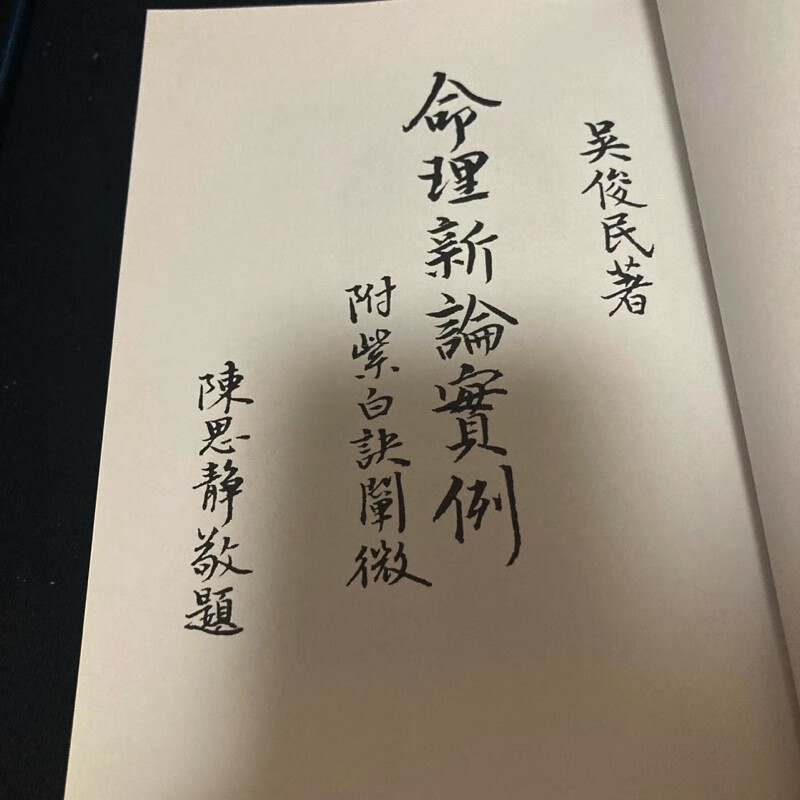 吴俊民著
命理新論實例
附紫白訣闡微
陳思靜敬題